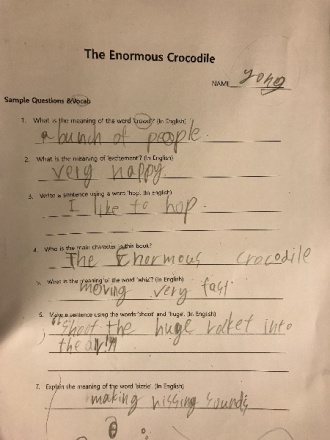 The Enormous Crocodile
NAME yong
Sample Questions &Vocab
1. What is the meaning of the word 'crowd'? (In English)
a bunch of people.
2. What is the meaning of 'excitement'? (In English)
very happy.
3. Write a sentence using a word 'hop'. (In English)
I like to hop.
4. Who is the main character in this book?
The Enormous Crocodile
5. What is the meaning of the word 'whiz'? (In English)
moving very fast.
6. Make a sentence using the words 'shoot' and 'huge'. (In English)
"shoot the huge rocket into
the
7. Explain the meaning of the word 'sizzle'. (In English)
making hissing sounds